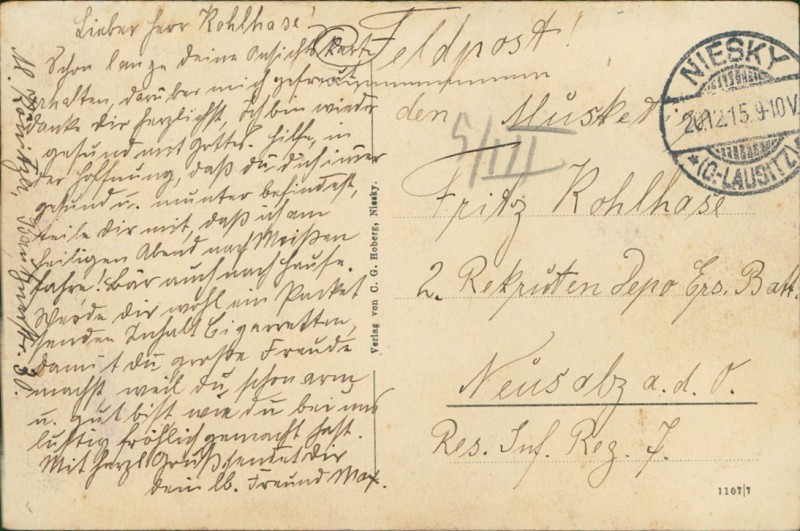 Lieber Herr Kohlhase!
Schon lange deine Ansichtskarte
erhalten, darüber mich gefreut
danke dir herzlichst, ich bin wieder
gesund mit Gottes Hilfe, in
der Hoffnung, daß du dich immer
gesund u. munter befindest,
teile dir mit, daß ich am
heiligen Abend nach Meißen
fahre! Bär auch nach Hause.
Werde dir wohl ein Packet
senden Inhalt Cigarretten,
damit du große Freude
machst weil du schon arm
u. gut bist wie du bei uns
lustig fröhlich gemacht hast.
Mit herzl. Gruß sendet dir
dein lb. Freund Max.
30.
Verlag von C. G. Hoberg, Niesky.
Feldpost!
den Musket
5/III
Fritz Kohlhase
2. Rekruten Depo Ers. Batt.
Neusalz a. d. O.
Res. Inf. Reg. 7.
NIESKY
20.12.15.9-10V.
*(O-LAUSITZ)*
1107/7